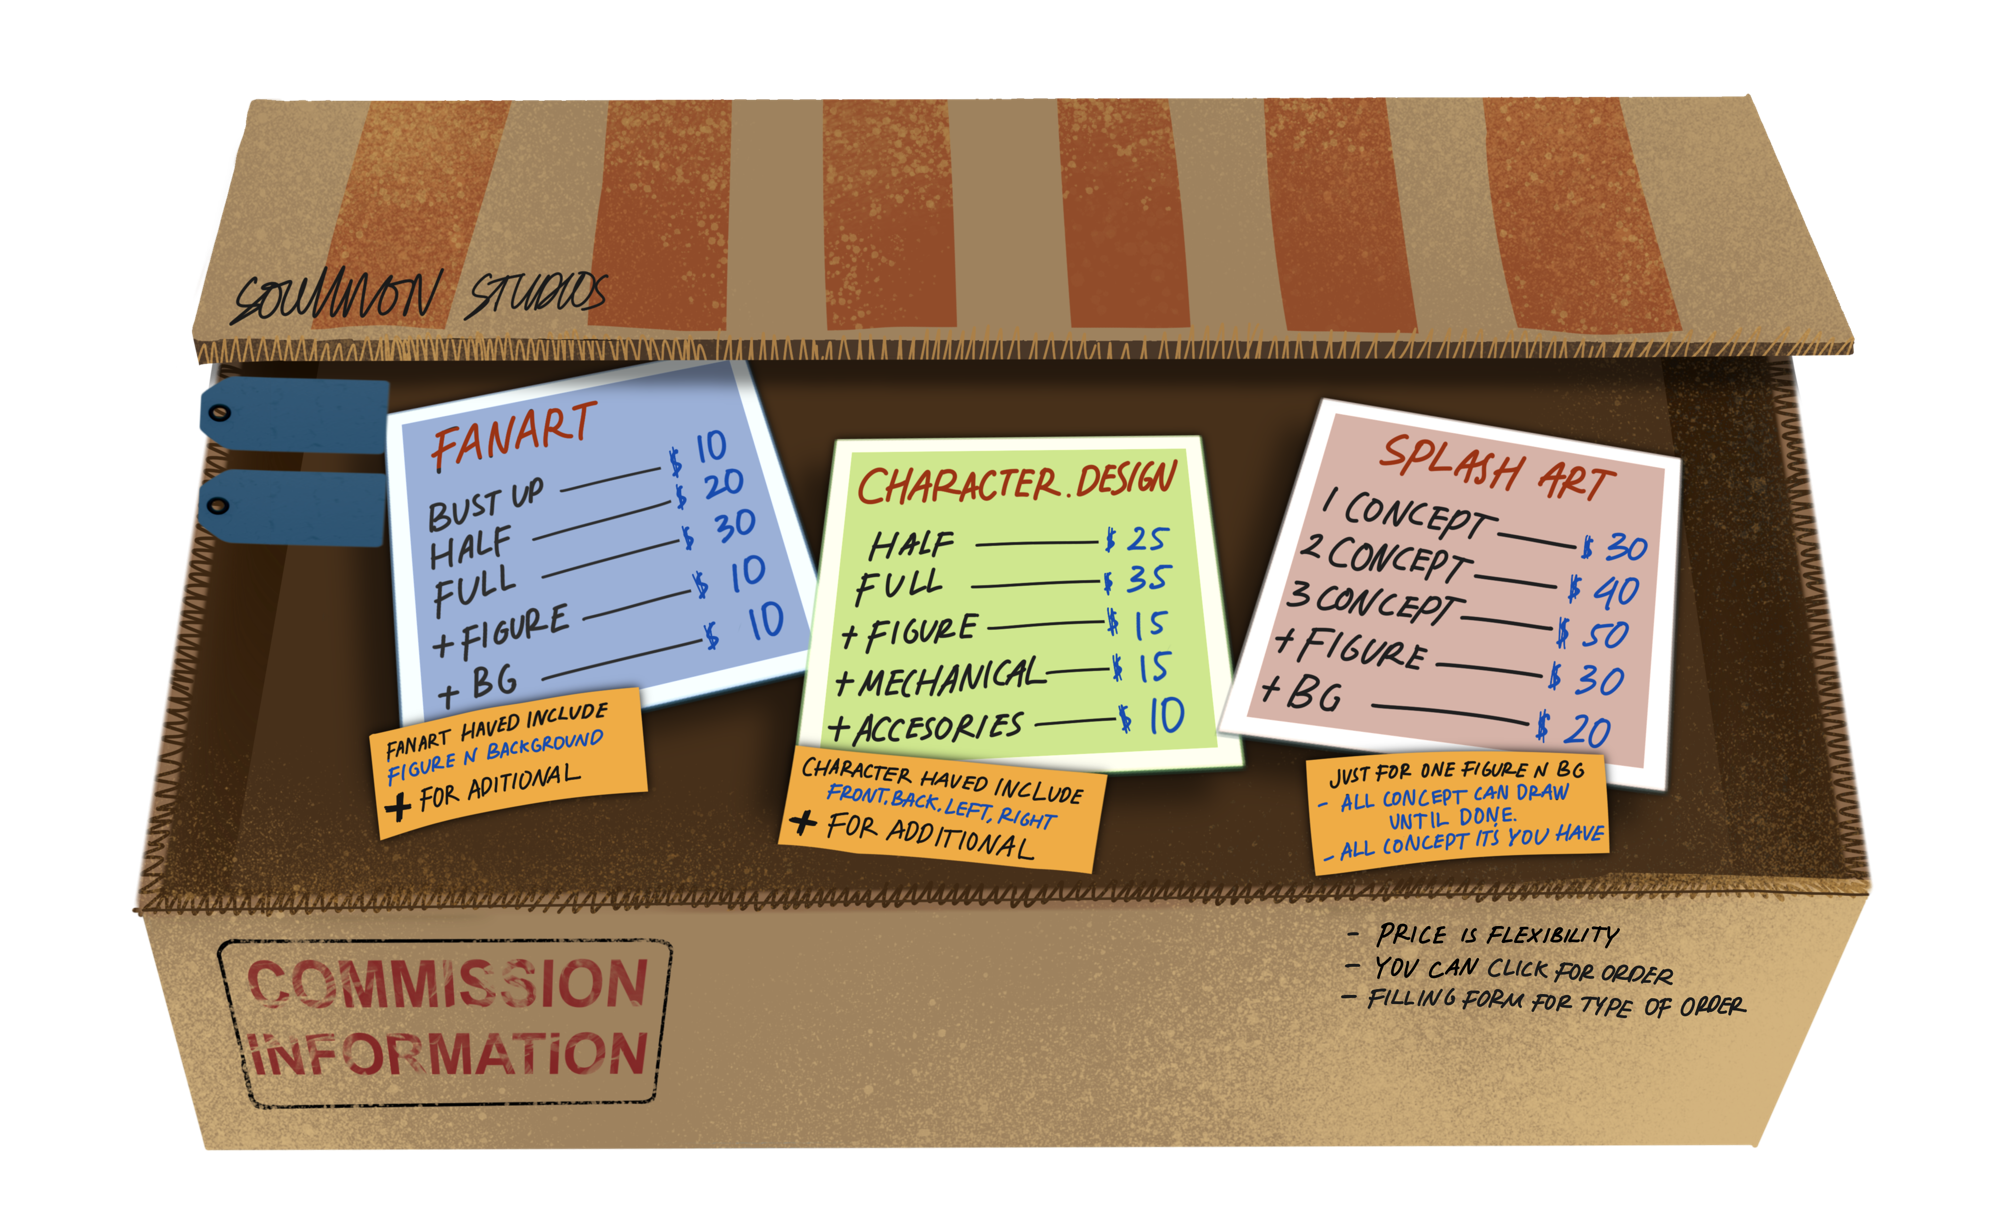 SOUMNON STUDIOS
FANART
BUST UP $ 10
HALF $ 20
FULL $ 30
+ FIGURE $ 10
+ BG $ 10
FANART HAVED INCLUDE
FIGURE N BACKGROUND
+ FOR ADITIONAL
CHARACTER.DESIGN
HALF $ 25
FULL $ 35
+ FIGURE $ 15
+ MECHANICAL $ 15
+ ACCESORIES $ 10
CHARACTER HAVED INCLUDE
FRONT, BACK, LEFT, RIGHT
+ FOR ADDITIONAL
SPLASH ART
1 CONCEPT $ 30
2 CONCEPT $ 40
3 CONCEPT $ 50
+ FIGURE $ 30
+ BG $ 20
JUST FOR ONE FIGURE N BG
- ALL CONCEPT CAN DRAW
UNTIL DONE.
- ALL CONCEPT IT'S YOU HAVE
COMMISSION
INFORMATION
- PRICE IS FLEXIBILITY
- YOU CAN CLICK FOR ORDER
- FILLING FORM FOR TYPE OF ORDER